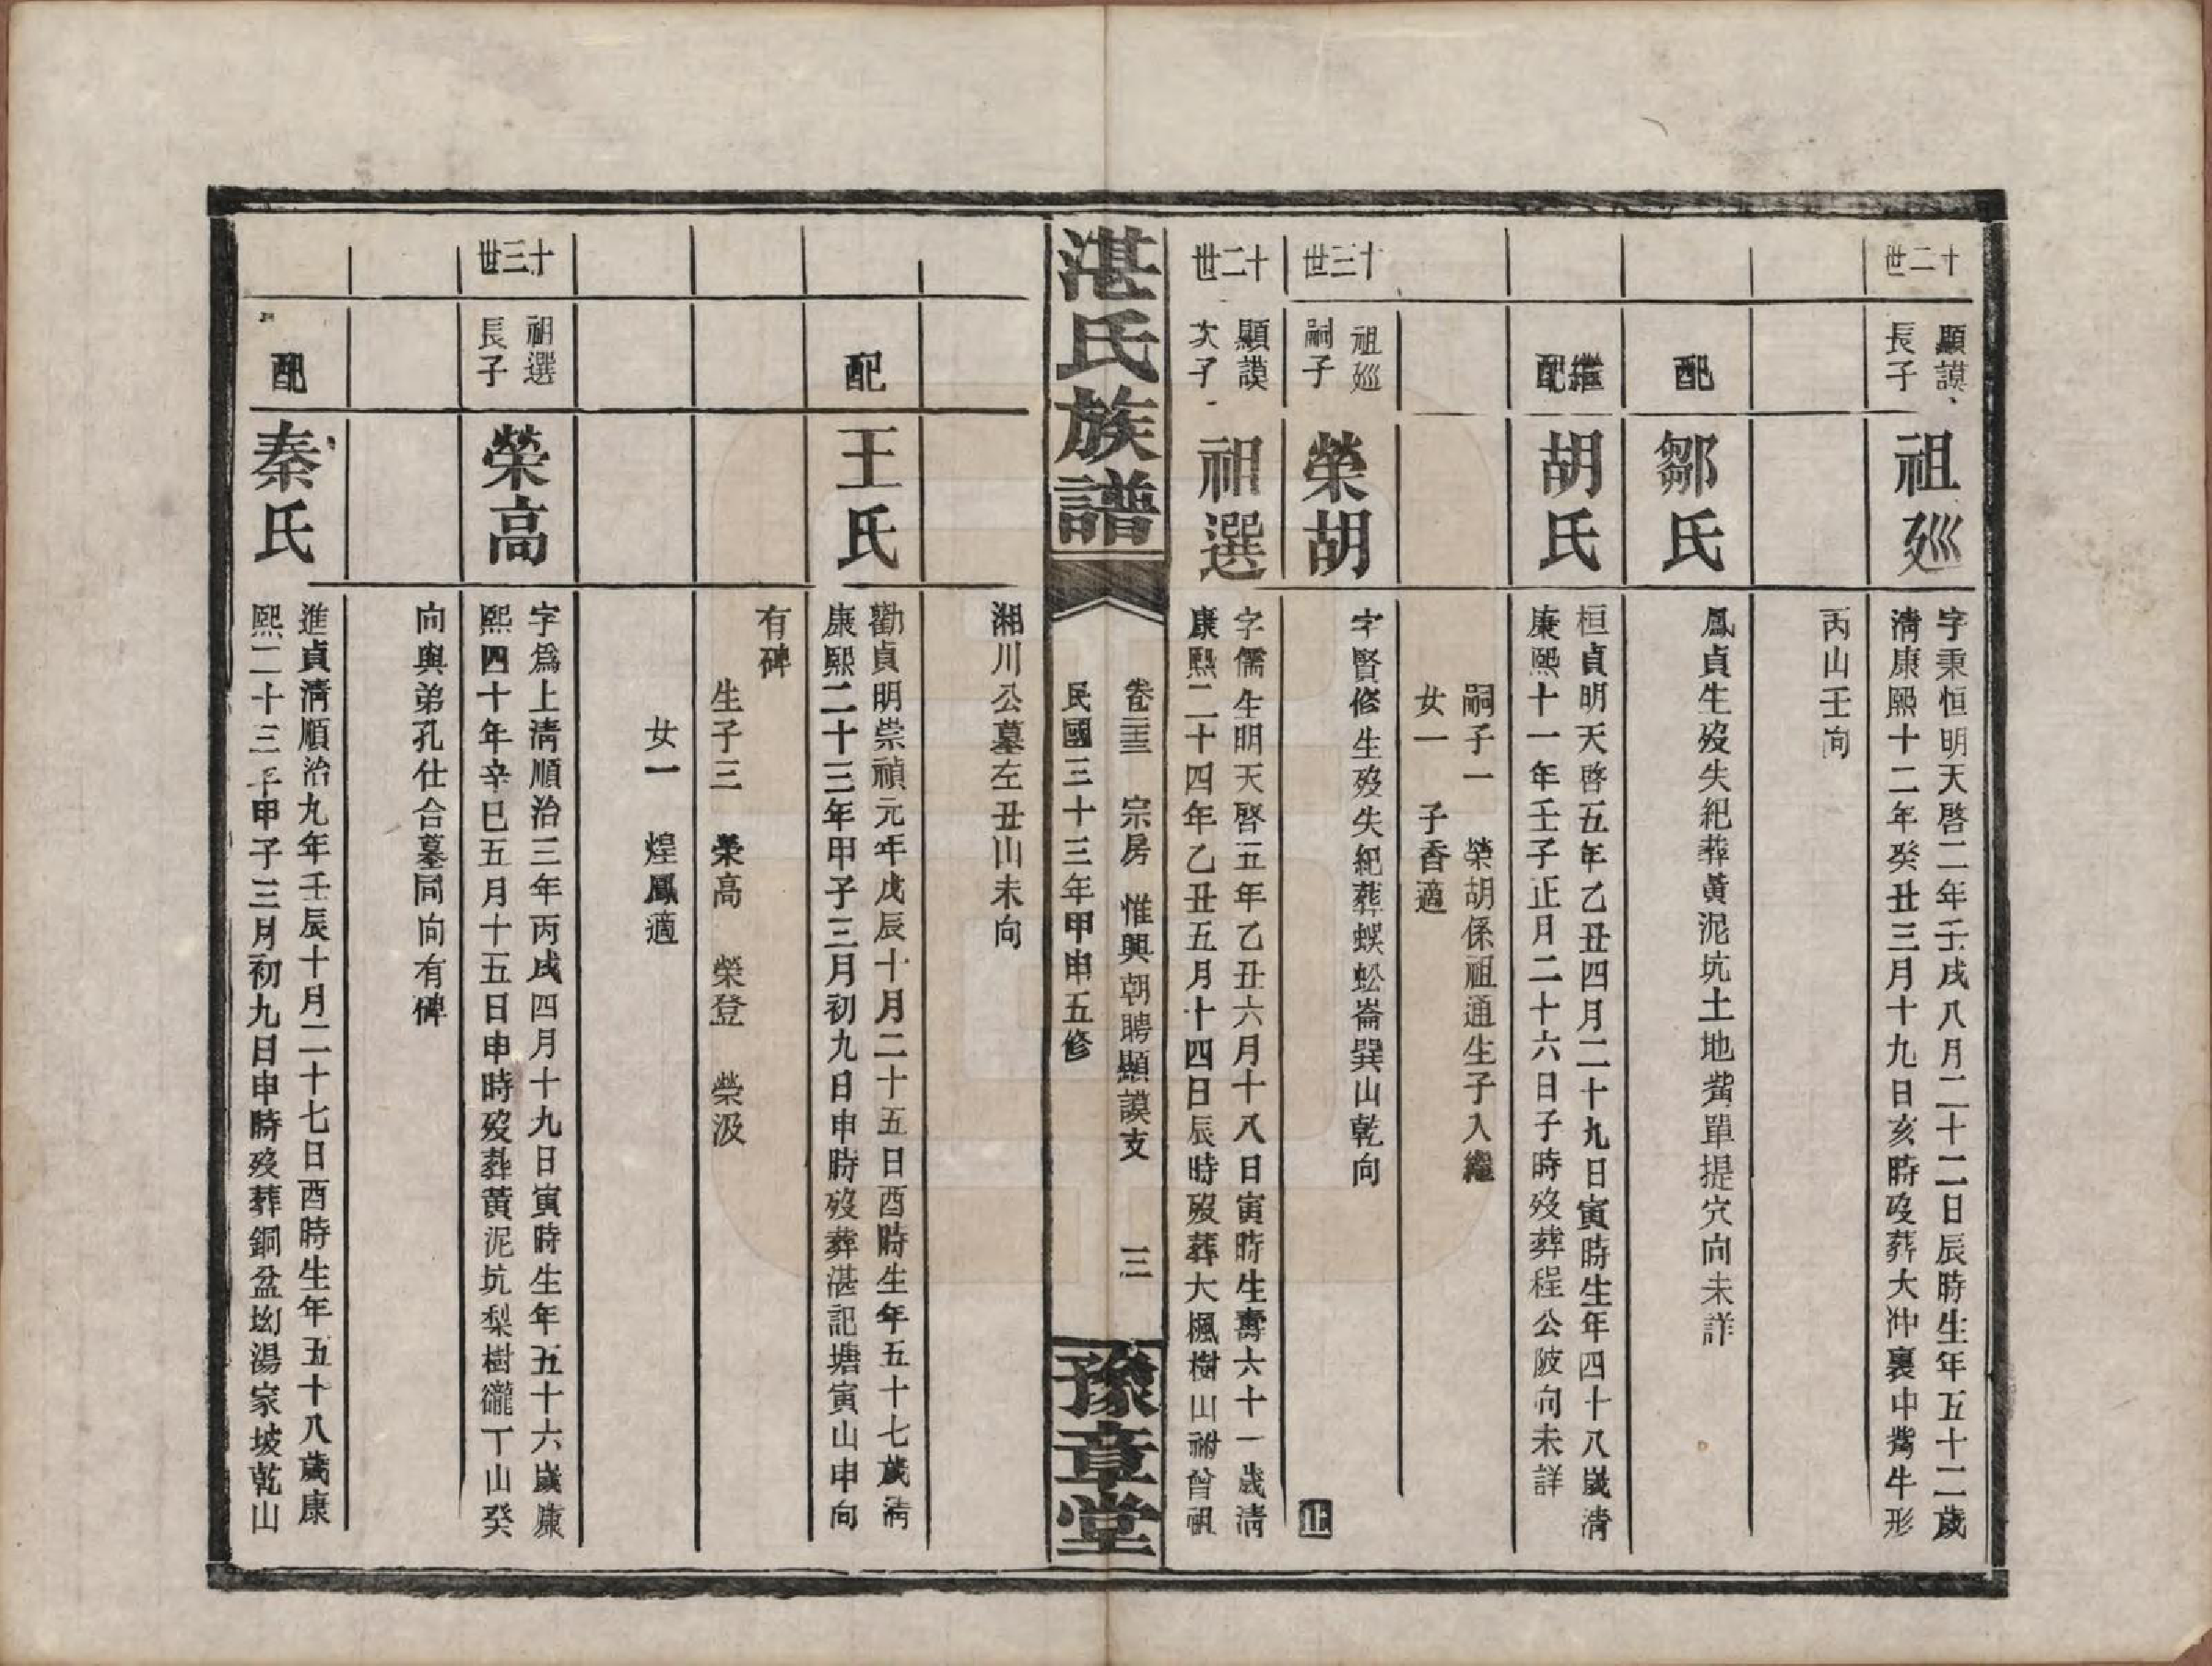 十二世
顯謨長子
祖廵
字秉恒明天啓二年壬戌八月二十二日辰時生年五十二歲
清康熙十二年癸丑三月十九日亥時歿葬大冲裏中嘴牛形
丙山壬向
配
鄒氏
鳳貞生歿失紀葬黃泥坑土地嘴單提穴向未詳
繼配
胡氏
桓貞明天啓五年乙丑四月二十九日寅時生年四十八歲清
康熙十一年壬子正月二十六日子時歿葬程公陂向未詳
嗣子一　榮胡係祖通生子入繼
女一　子香適
十三世
祖廵嗣子
榮胡
字賢修生歿失紀葬蜈蚣崙巽山乾向
止
十二世
顯謨次子
祖選
字儒生明天啓五年乙丑六月十八日寅時生壽六十一歲清
康熙二十四年乙丑五月十四日辰時歿葬大楓樹山祔曾祖
湛氏族譜
卷三十三　宗房　惟興朝聘顯謨支　三
民國三十三年甲申五修
豫章堂
湘川公墓左丑山未向
配
王氏
勸貞明崇禎元年戊辰十月二十五日酉時生年五十七歲清
康熙二十三年甲子三月初九日申時歿葬湛記塘寅山申向
有碑
生子三　榮高　榮登　榮汲
女一　煌鳳適
十三世
祖選長子
榮高
字爲上清順治三年丙戌四月十九日寅時生年五十六歲康
熙四十年辛巳五月十五日申時歿葬黃泥坑梨樹巃丁山癸
向與弟孔仕合墓同向有碑
配
秦氏
進貞清順治九年壬辰十月二十七日酉時生年五十八歲康
熙二十三年甲子三月初九日申時歿葬銅盆坳湯家坡乾山